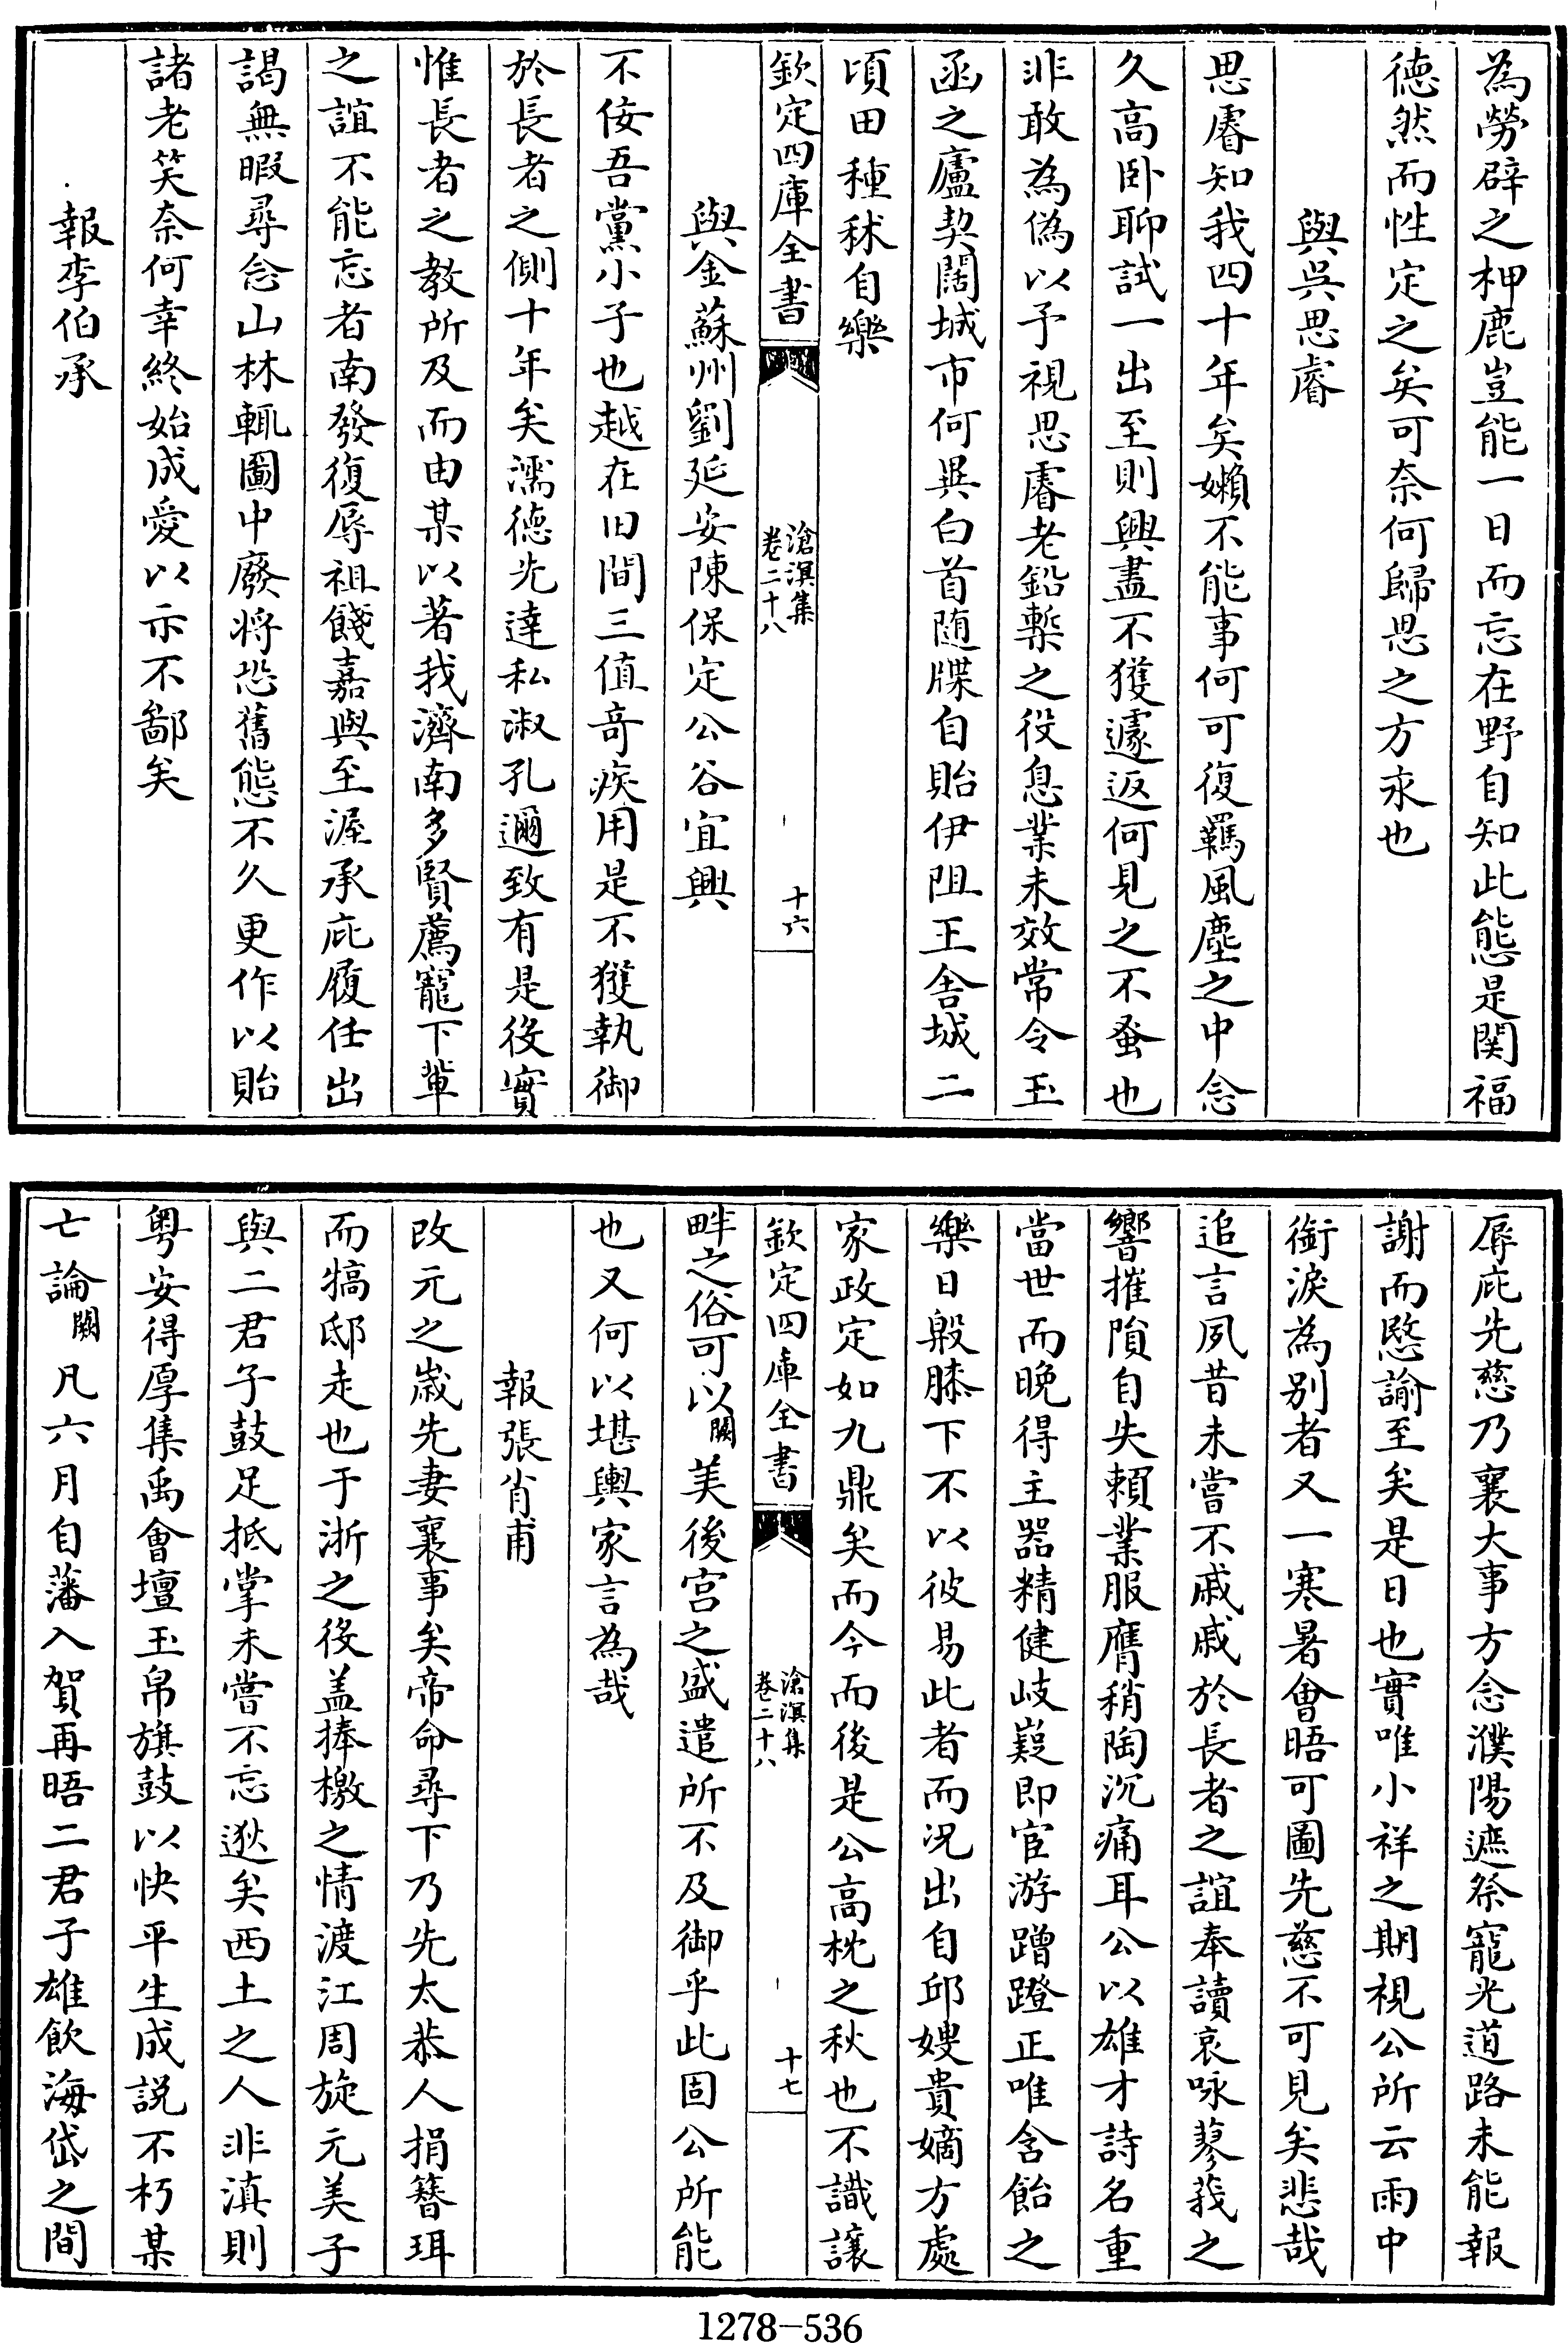 為勞辟之柙鹿豈能一日而忘在野自知此態是関福
徳然而性定之矣可奈何歸思之方永也
與吳思睿
思睿知我四十年矣嬾不能事何可復羈風塵之中念
久高卧聊試一出至則興盡不獲遽返何見之不蚤也
非敢為偽以予視思睿老鉛槧之役息業未效常令玉
函之廬契闊城市何異白首随牒自貽伊阻王舎城二
頃田種秫自樂
欽定四庫全書
滄溟集
卷二十八
十六
與金蘇州劉延安陳保定公谷宜興
不佞吾黨小子也越在旧間三值奇疾用是不獲執御
於長者之側十年矣濡德先達私淑孔邇致有是後實
惟長者之教所及而由某以著我濟南多賢薦寵下輩
之誼不能忘者南發復辱祖餞嘉與至渥承庇履任出
謁無暇尋念山林輒圖中廢将恐舊態不久更作以貽
諸老笑奈何幸終始成愛以示不鄙矣
報李伯承
辱庇先慈乃襄大事方念濮陽遮祭寵光道路未能報
謝而愍諭至矣是日也實唯小祥之期視公所云雨中
銜淚為别者又一寒暑會晤可圖先慈不可見矣悲哉
追言夙昔未嘗不戚戚於長者之誼奉讀哀咏蓼莪之
響摧隕自失賴業服膺稍陶沉痛耳公以雄才詩名重
當世而晚得主器精健岐嶷即宦游蹭蹬正唯含飴之
樂日般膝下不以彼易此者而况出自邱嫂貴嫡方處
家政定如九鼎矣而今而後是公高枕之秋也不識讓
欽定四庫全書
滄溟集
卷二十八
十七
畔之俗可以闕美後宫之盛遣所不及御乎此固公所能
也又何以堪輿家言為哉
報張肖甫
改元之歲先妻襄事矣帝命尋下乃先太恭人捐簪珥
而犒邸走也于浙之役盖捧檄之情渡江周旋元美子
與二君子鼓足抵掌未嘗不忘逖矣西土之人非滇則
粤安得厚集禹會壇玉帛旗鼓以快平生成説不朽某
七論闕凡六月自藩入賀再晤二君子雄飲海岱之間
1278-536